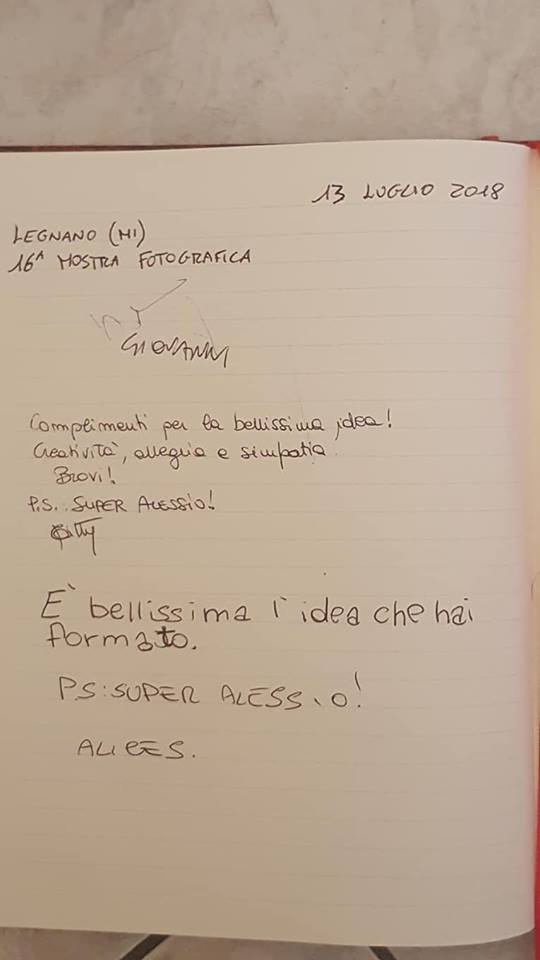 13 LUGLIO 2018
LEGNANO (MI)
16ª MOSTRA FOTOGRAFICA
GIOVANNI
Complimenti per la bellissima idea!
Creatività, allegria e simpatia.
Bravi!
P.S.: SUPER ALESSIO!
E' bellissima l'idea che hai
formato.
PS: SUPER ALESSIO!
ALICE S.